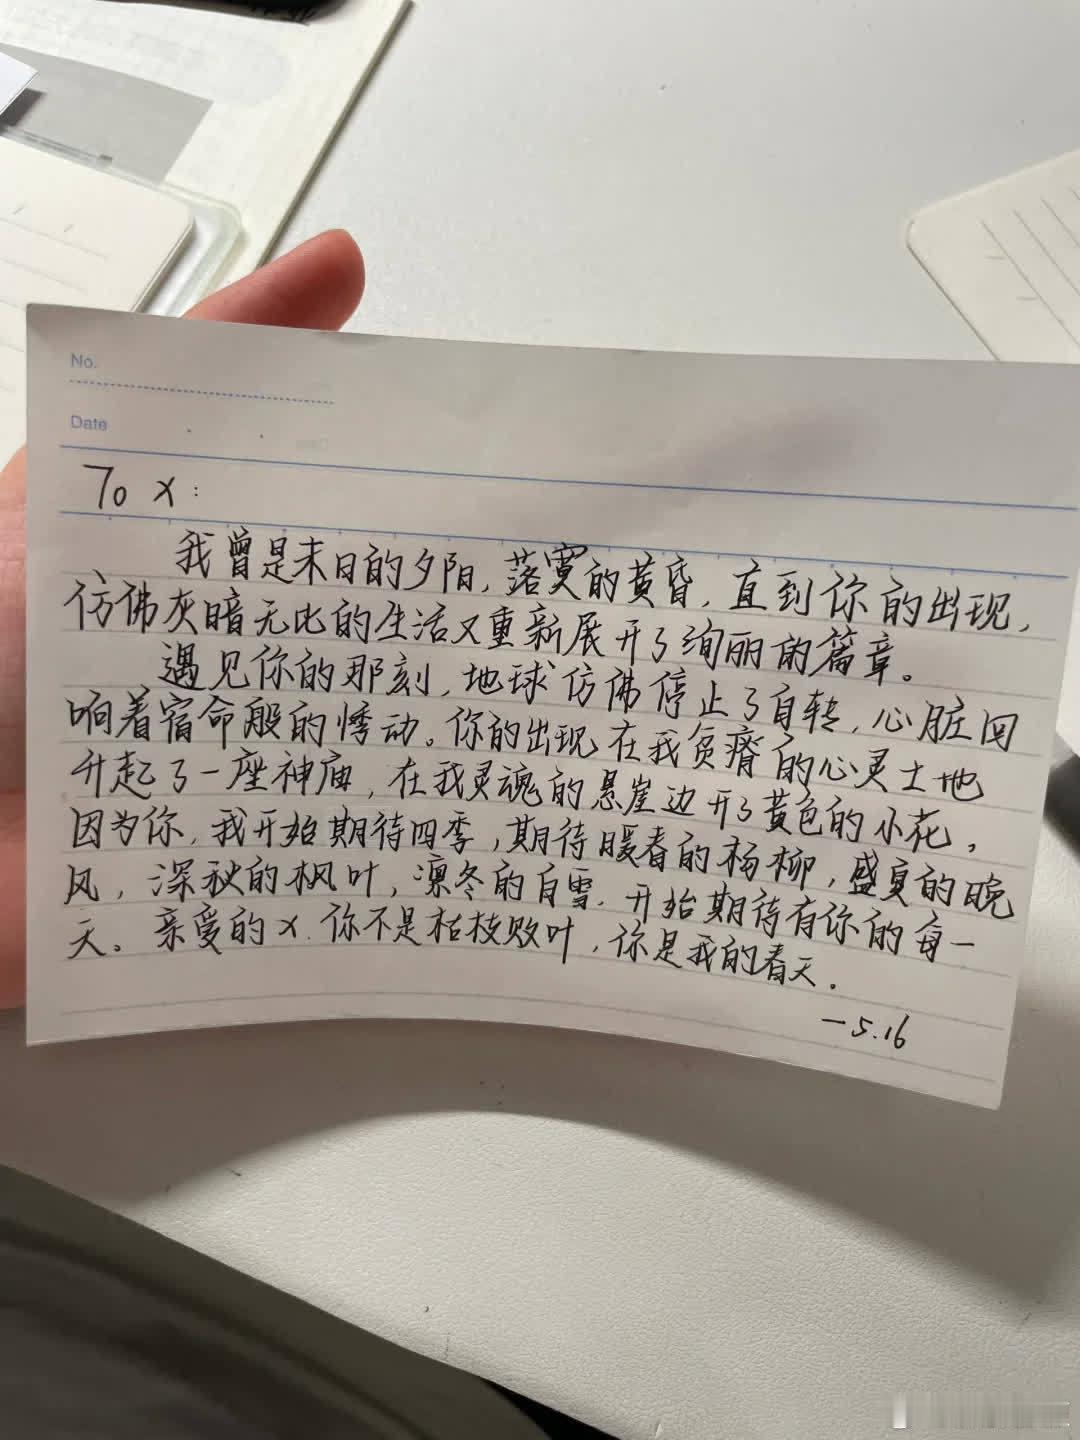 No.
Date
To x:
我曾是末日的夕阳,落寞的黄昏,直到你的出现,
仿佛灰暗无比的生活又重新展开了绚丽的篇章。
遇见你的那刻,地球仿佛停止了自转,心脏回
响着宿命般的悸动。你的出现在我贫瘠的心灵土地
升起了一座神庙,在我灵魂的悬崖边开了黄色的小花,
因为你,我开始期待四季,期待暖春的杨柳,盛夏的晚
风,深秋的枫叶,凛冬的白雪.开始期待有你的每一
天。亲爱的x.你不是枯枝败叶,你是我的春天.
—5.16